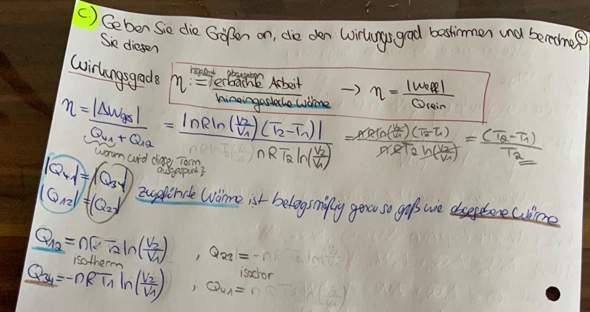 c) Geben Sie die Größen an, die den Wirkungsgrad bestimmen und berechnen
Sie diesen
Wirkungsgrad: η := erbrachte Arbeit / hineingesteckte Wärme → η = |W_eff| / Q_rein
η = |ΔW_ges| / (Q_41 + Q_12) = |nR ln(V_2/V_1)(T_2-T_1)| / nRT_2 ln(V_2/V_1) = nR ln(V_2/V_1)(T_2-T_1) / nRT_2 ln(V_2/V_1) = (T_2-T_1) / T_2
warum wird dieser Term
ausgespart?
|Q_41| = |Q_34|
|Q_12| = |Q_23| zugeführte Wärme ist betragsmäßig genau so groß wie abgegebene Wärme
Q_12 = nRT_2 ln(V_2/V_1) , Q_23 = -n
isotherm isochor
Q_34 = -nRT_1 ln(V_2/V_1) , Q_41 = n